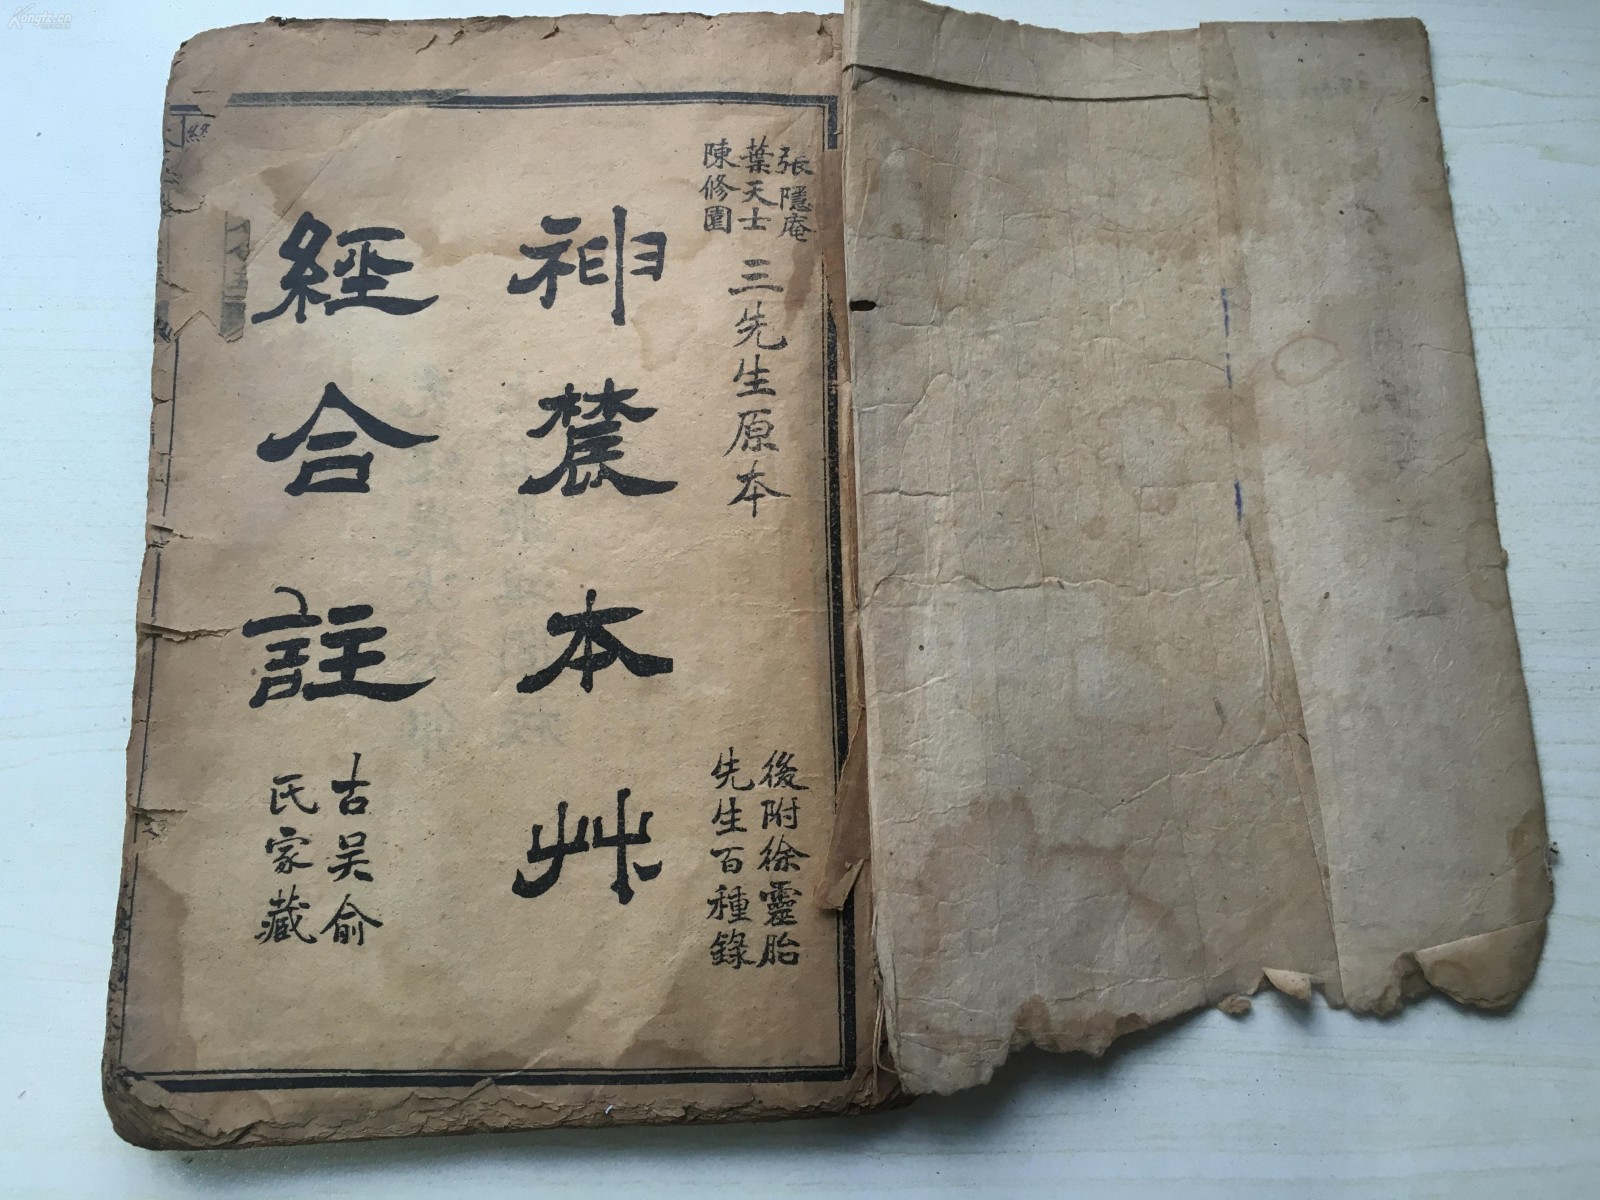 張隱庵
葉天士
陳修園
三先生原本
後附徐靈胎
先生百種錄
神農本艸
經合註
古吳俞
氏家藏
Kongfz.cn